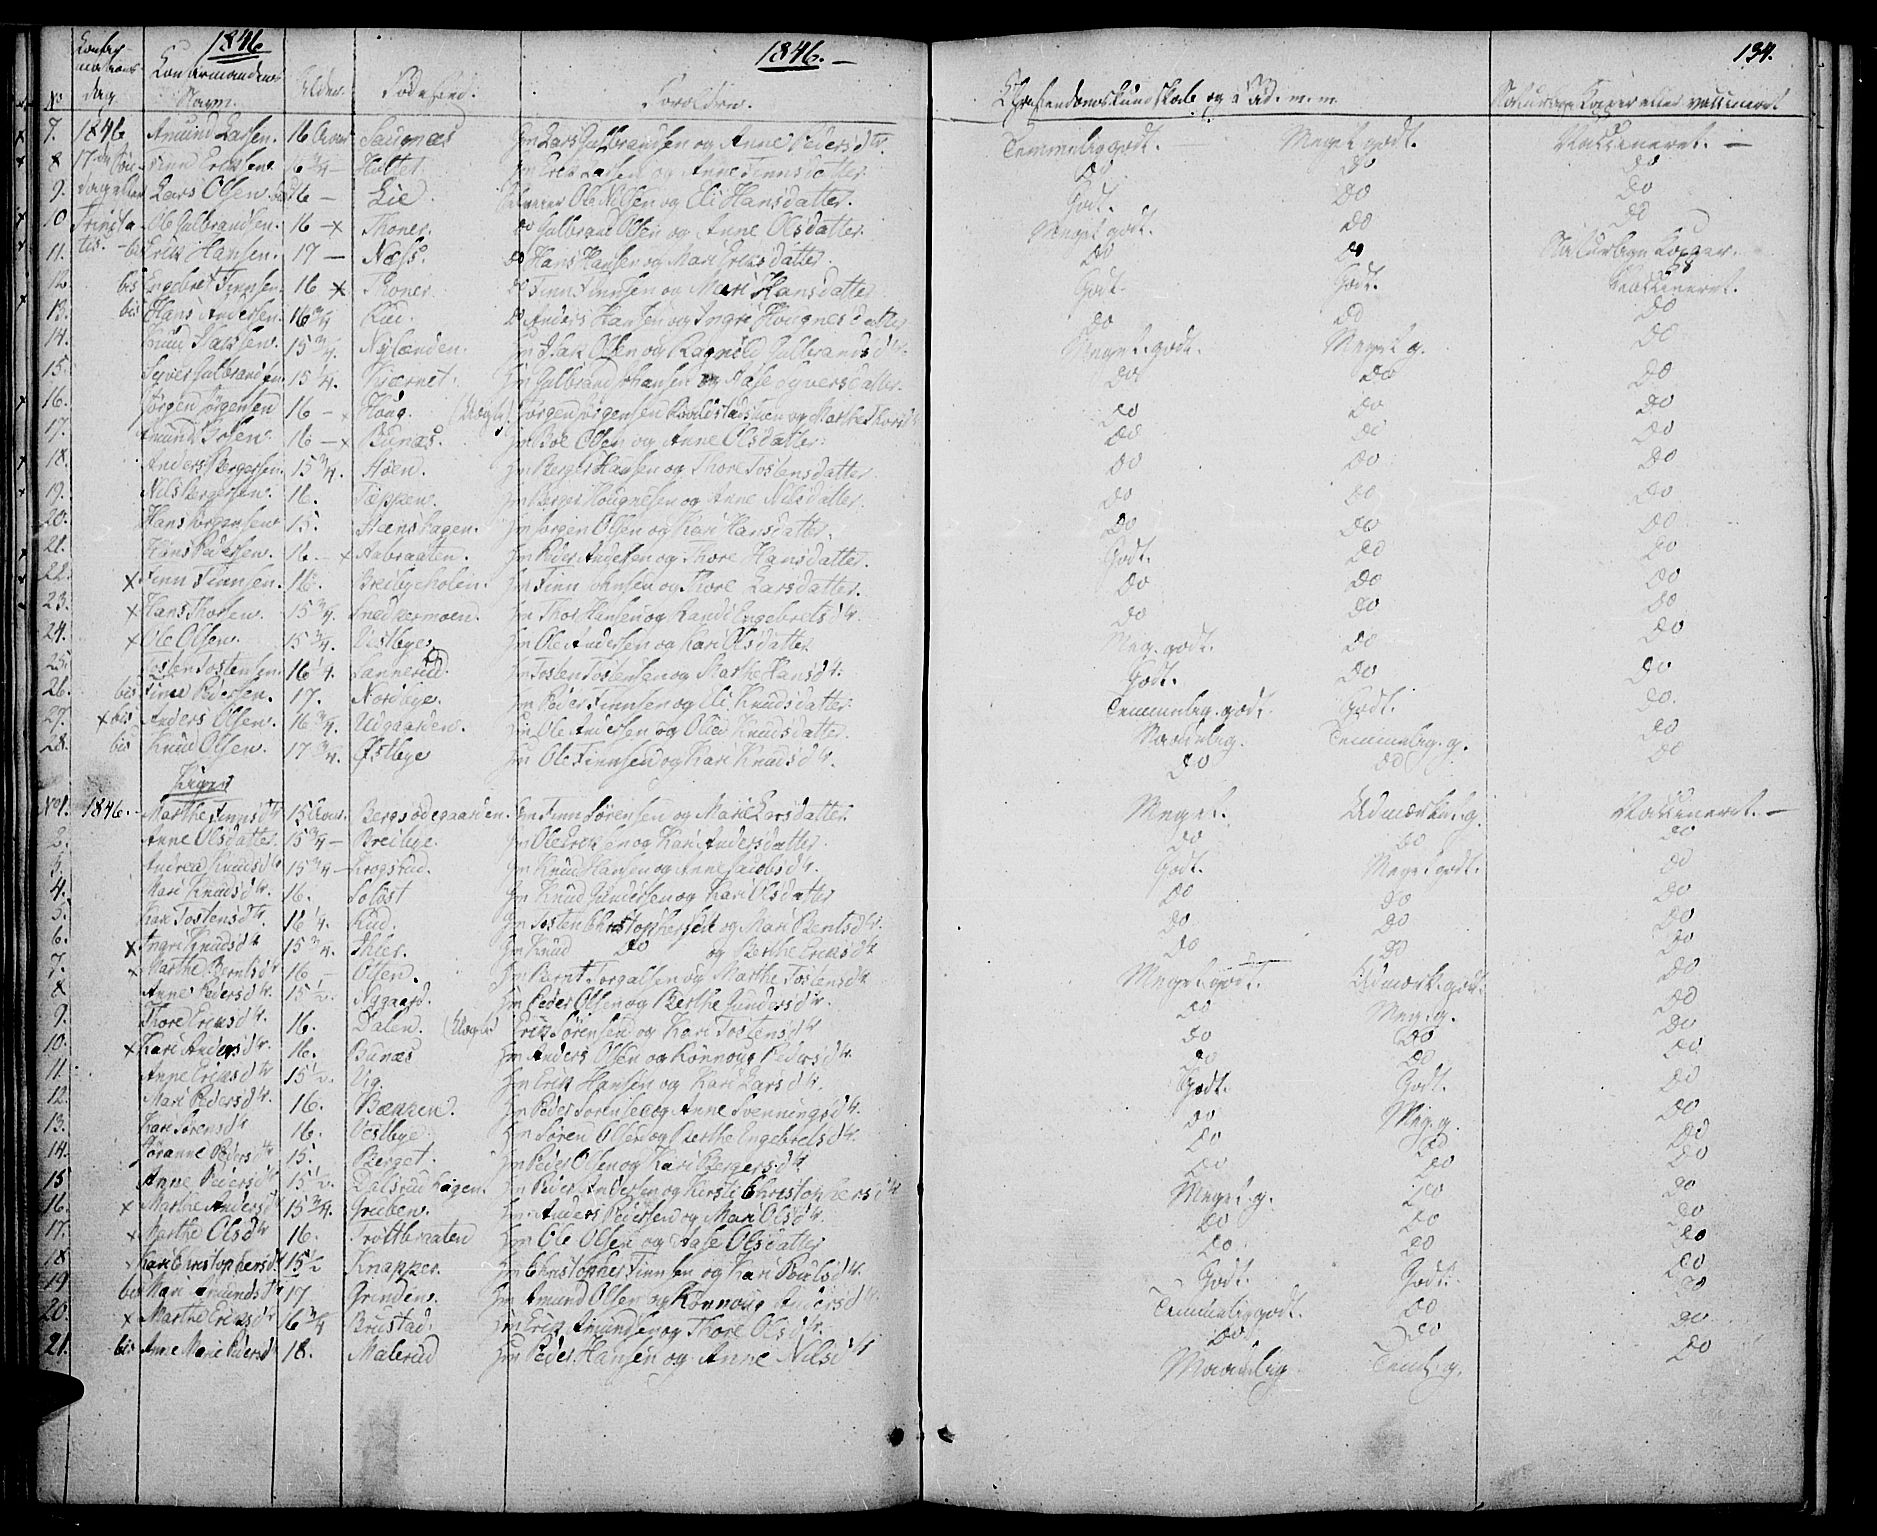 1846 1846.— 134.
No Confirmationsdag Confirmandens Navn. Alder Fødested. Forældre. Christendomskundskab og Flid m. m. Naturlige Kopper eller vaccineret
7. 1846 Amund Larsen. 16 Lars Gulbrandsen og Anne Pedersdtr Temmelig godt. Meget godt. Vaccineret. —
8 17 Finn Eriksen. 16 3/4 — Hm Erik Larsen og Anne Finnsdatter Do Do Do
9. Lars Olsen 16 — Lie. Ole Nilsen og Eli Hansdatter. Godt. Do Do
10 Trinita Ole Gulbrandsen. 16 —x Thoner. do Gulbrand Olsen og Anne Olsdatter Meget godt. Do Do
11. tis. bis Erik Hansen. 17 — Næss. do Hans Hansen og Mari Eriksdatter. Do Do Naturlige Kopper.
12 bis Engebret Finnsen. 16 x Thoner do Finn Finnsen og Mari Hansdatter Godt. Godt. Vaccineret.
13. bis Hans Andersen. 16 3/4 Rud. do Anders Hansen og Ingri Hougnesdatter Do Do Do
14. Knud Isaksen. 15 3/4. Nylænden. Hm Isak Olsen og Ragnild Gulbrandsdtr. Meget godt. Meget g. Do
15. Syver Gulbrandsen 15 1/4. Kjærnet. Hm Gulbrand Johansen og Aase Syversdatter. Do Do Do
16. Jørgen Jørgensen 16 — x Houg. Jørgen Jørgensen og Marthe Do Do Do
17. Amund Boesen. 16 —x Bunæs. Hm Boe Olsen og Anne Olsdatter. Do Do Do
18. Anders Bergersen. 15 3/4. Hoen. Hm Berger Hansen og Thore Tostensdatter. Do Do Do
19. Nils Bergersen. 16. Tæppen. Hm Berger Hougnesen og Anne Nilsdatter. Do Do Do
20. Hans Jørgensen 15. Steenshagen. Hm Jørgen Olsen og Kari Hansdatter. Do Do Do
21. Hans Pedersen. 16. — x Aabraaten. Hm Peder Andersen og Thore Hansdatter. Godt. Do Do
22. x Finn Finnsen. 16. Breibyeholen. Hm Finn Johnsen og Thore Larsdatter. Do Do Do
23. x Hans Thorsen. 15 3/4. Snedkermoen. Hm Thor Hansen og Randi Engebretsdtr. Do Do Do
24. x Ole Olsen. 15 3/4. Vestbye Hm Ole Andersen og Kari Olsdatter Meg. godt. Do Do
25. Tosten Tostensen. 16 1/4. Sannerud. Hm Tosten Tostensen og Marthe Hansdtr. Godt. Do Do
26. bis Finn Pedersen. 17. Nordbye. Hm Peder Finnsen og Eli Knudsdatter. Temmelig godt Godt. Do.
27. x bis Anders Olsen. 16 3/4. Udgaarden. Hm Ole Andersen og Olia Knudsdatter. Maadelig. Temmelig g. Do
28. bis Knud Olsen. 17 3/4. Østbye Hm Ole Finnsen og Kari Knudsdtr. Do Do Do
Piger
No 1. 1846. Marthe Finnsdtr 15 Bergsødegaarden. Hm Finn Sørensen og Mari Larsdatter Meget. Udmærket g. Vaccineret. —
2. Anne Olsdatter. 15 3/4 — Breibye. Hm Ole Eriksen og Kari Andersdatter. Do Do Do
3. Andrea Knudsdtr 15 3/4 — Krogstad. Hm Knud Hansen og Anne Jacobsdtr. Godt. Meget godt. Do
4. Mari Knudsdtr. 16. Soløst Hm Knud Gundersen og Kari Olsdatter Do Do Do
5. Kari Tostensdtr. 16 1/4. Rud. Hm Tosten Christophersen og Mari Berntsdtr. Do Do Do
6. x Ingri Knudsdtr 15 3/4. Ihles. Hm Knud Do og Berthe Eriksdtr Do Do Do
7. x Marthe Berntsdtr 16 — Olsen. Hm Bernt Torgalsen og Marthe Tostensdtr Meget godt. Udmærk. godt. Do
8 Anne Pedersdtr. 15 1/2. Nygaard. Hm Peder Olsen og Berthe Gundersdtr. Do Meg. g. Do
9. Thore Eriksdtr. 16. Dalen. Erik Sørensen og Kari Tostensdtr Do Do Do
10. x Kari Andersdtr. 16. Bunæs Hm Anders Olsen og Rønnoug Pedersdtr. Do Do Do
11. Anne Eriksdtr 15 1/2. Vig. Hm Erik Hansen og Kari Larsdtr. Godt. Godt. Do
12. Mari Pedersdtr. 16. Bækken. Hm Peder Sørensen og Anne Svenningsdtr. Do Meg. g. Do
13. Kari Sørensdtr 16. Vestbye. Hm Søren Olsen og Berthe Engebretsdtr. Do Do Do
14. Jøranne Pedersdtr 15. Berget. Hm Peder Olsen og Kari Bergersdtr Do Do Do
15 Anne Pedersdtr 15 1/2. Dalsrudhagen. Hm Peder Andersen og Kirsti Christophersdtr Meget g. Do Do
16. x Marthe Andersdtr 15 3/4. Gruben. Hm Anders Pedersen og Mari Olsdtr. Do Do Do
17. x Marthe Olsdtr 16. Trøttbraaten Hm Ole Olsen og Aase Olsdatter Do Do Do
18 Kari Christophersdtr. 15 1/2 Knapper. Hm Christopher Finnsen og Kari Poulsdtr. Godt. Godt. Do
19 bis Mari Amundsdtr 17. Grinden. Hm Amund Olsen og Rønnoug Andersdtr. Temmelig godt. Do Do
20. x Marthe Eriksdtr 16 3/4 Brustad. Hm Erik Amundsen og Thore Olsdtr. Do. Do Do
21. bis Anne Marie Pedersdtr 18. Malerud Hm Peder Hansen og Anne Nilsdtr Maadelig Teml. g. Do